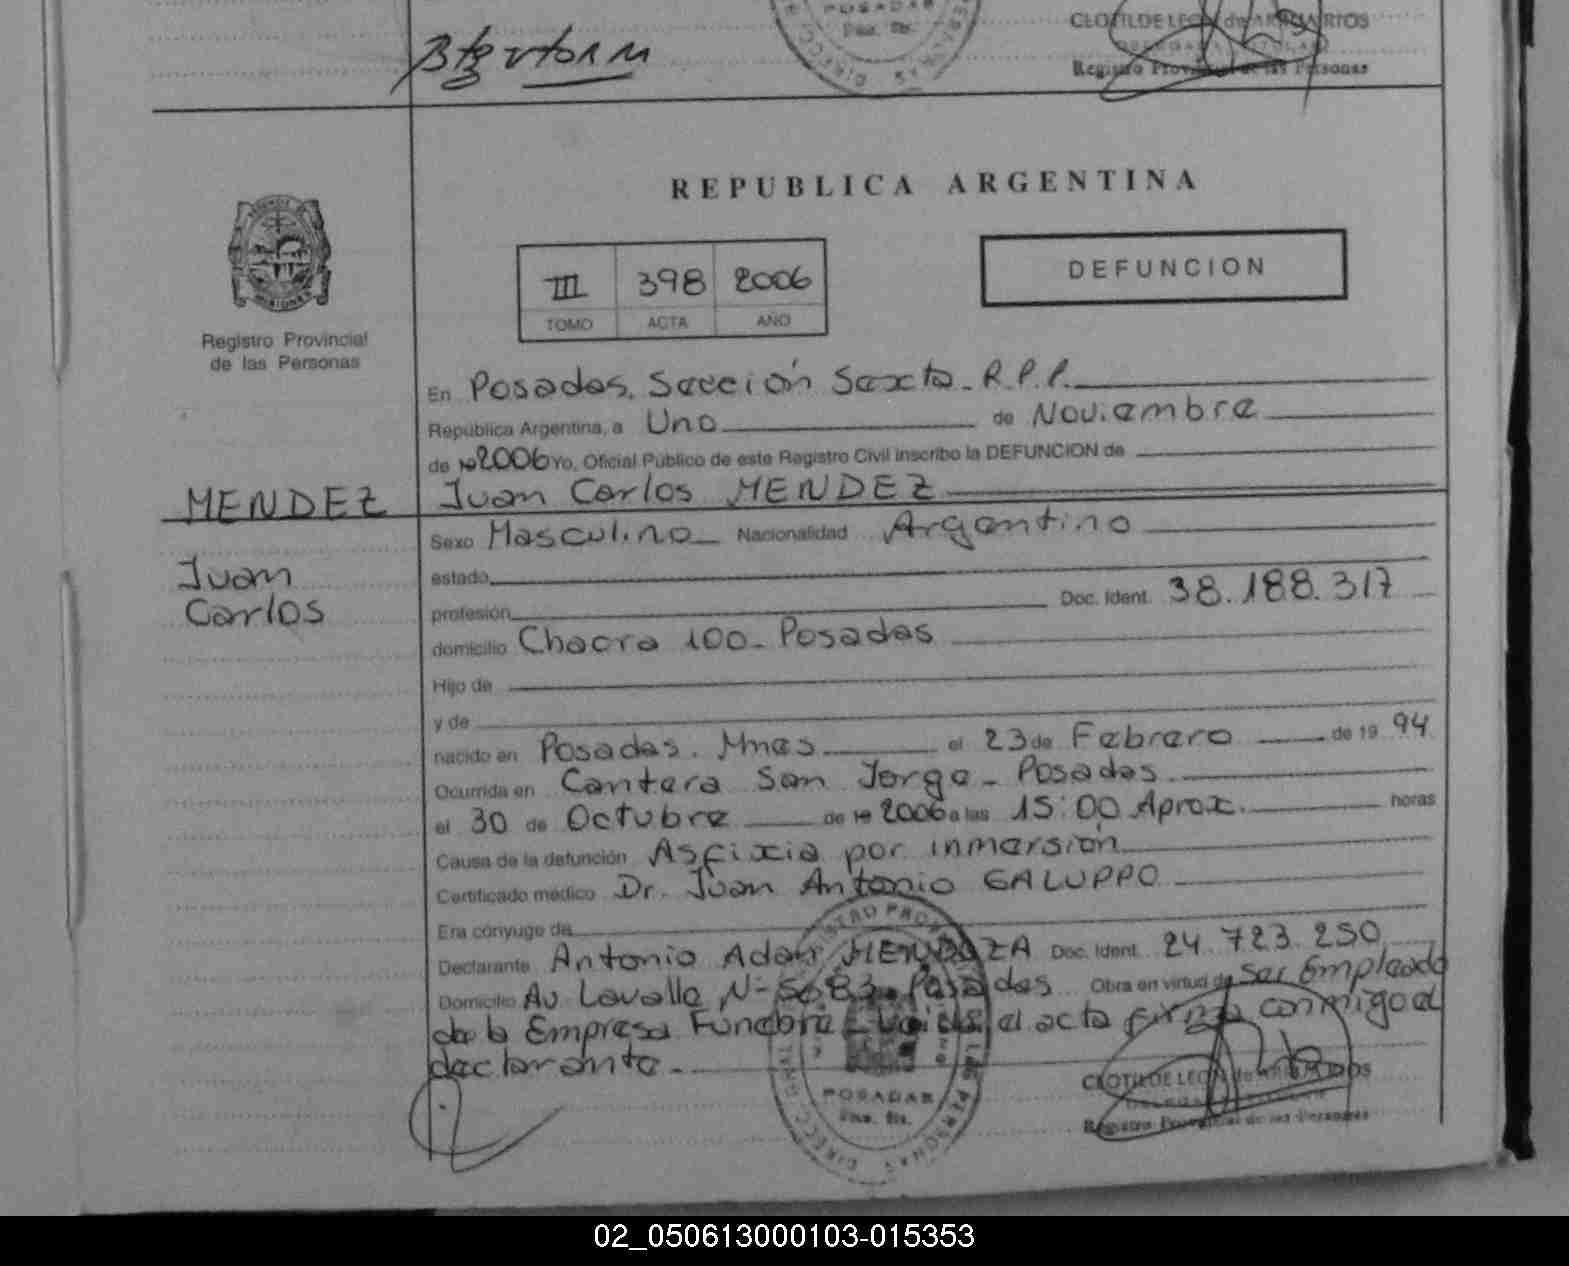 POSADAS
CLOTILDE LEON de
Registro Provincial de las Personas
REPUBLICA ARGENTINA
III 398 2006
TOMO ACTA AÑO
DEFUNCION
MISIONES
Registro Provincial
de las Personas
En Posadas, Sección Sexta. R.P.P.
República Argentina, a Uno de Noviembre
de 19 2006 Yo, Oficial Público de este Registro Civil inscribo la DEFUNCION de
MENDEZ Juan Carlos MENDEZ
Sexo Masculino Nacionalidad Argentino
Juan
Carlos
estado
profesión Doc. Ident. 38.188.317
domicilio Chacra 100 - Posadas
Hijo de
y de
nacido en Posadas. Mnes el 23 de Febrero de 19 94
Ocurrida en Cantera San Jorge - Posadas
el 30 de Octubre de 19 2006 a las 15:00 Aprox. horas
Causa de la defunción Asfixia por inmersión
Certificado médico Dr. Juan Antonio GALUPPO
Era cónyuge de
Declarante Antonio Adan Doc. Ident. 24.723.250
Domicilio Av. Lavalle N- Posadas Obra en virtud de Ser Empleado
de la Empresa Funebre el acta firma conmigo el
declarante.
POSADAS
CLOTILDE LEON de
Registro Provincial de las Personas
02_050613000103-015353